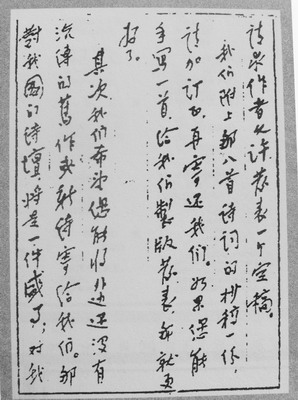 请求作者允许发表一个定稿。
我们附上那八首诗词的抄稿一份，
请加订正，再寄还我们。如果您能
手写一首，给我们製版发表，那就更
好了。
其次我们希望您能将外边还没有
流传的舊作或新诗寄给我们。那
對我國的诗壇，将是一件盛事；对我